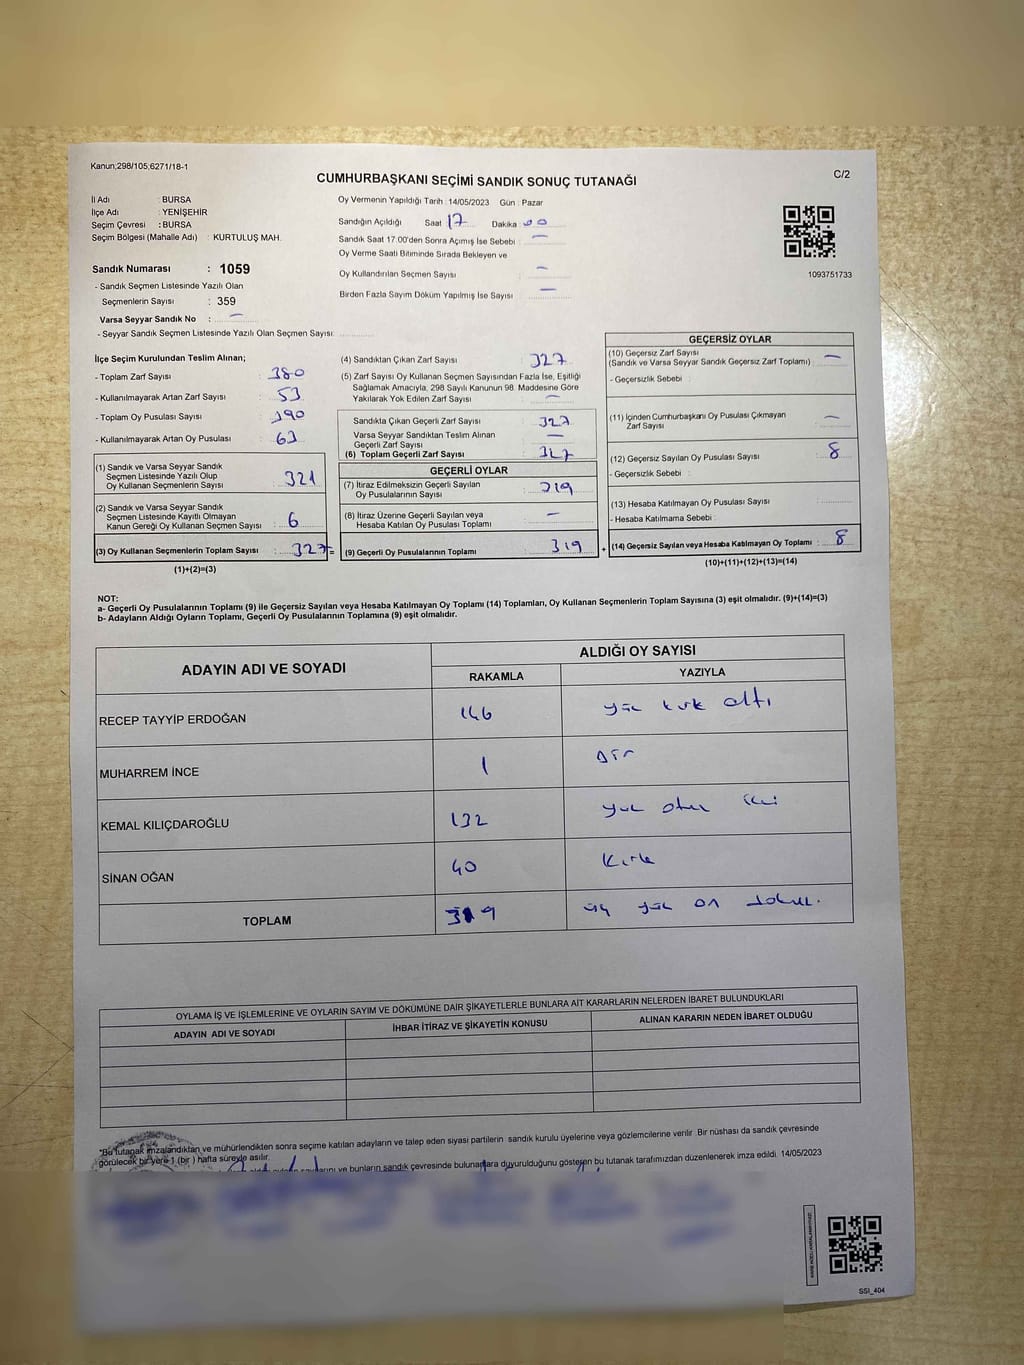 Kanun;298/105;6271/18-1
CUMHURBAŞKANI SEÇİMİ SANDIK SONUÇ TUTANAĞI
C/2
İl Adı : BURSA
İlçe Adı : YENİŞEHİR
Seçim Çevresi : BURSA
Seçim Bölgesi (Mahalle Adı) : KURTULUŞ MAH.
Sandık Numarası : 1059
- Sandık Seçmen Listesinde Yazılı Olan
Seçmenlerin Sayısı : 359
Varsa Seyyar Sandık No : —
- Seyyar Sandık Seçmen Listesinde Yazılı Olan Seçmen Sayısı:
Oy Vermenin Yapıldığı Tarih : 14/05/2023 Gün : Pazar
Sandığın Açıldığı Saat 17 Dakika 00
Sandık Saat 17:00'den Sonra Açımış İse Sebebi : —
Oy Verme Saati Bitiminde Sırada Bekleyen ve
Oy Kullandırılan Seçmen Sayısı : —
Birden Fazla Sayım Döküm Yapılmış İse Sayısı : —
1093751733
İlçe Seçim Kurulundan Teslim Alınan;
- Toplam Zarf Sayısı : 380
- Kullanılmayarak Artan Zarf Sayısı : 53
- Toplam Oy Pusulası Sayısı : 390
- Kullanılmayarak Artan Oy Pusulası : 63
(1) Sandık ve Varsa Seyyar Sandık
Seçmen Listesinde Yazılı Olup
Oy Kullanan Seçmenlerin Sayısı : 321
(2) Sandık ve Varsa Seyyar Sandık
Seçmen Listesinde Kayıtlı Olmayan
Kanun Gereği Oy Kullanan Seçmen Sayısı : 6
(3) Oy Kullanan Seçmenlerin Toplam Sayısı : 327 =
(1)+(2)=(3)
(4) Sandıktan Çıkan Zarf Sayısı : 327
(5) Zarf Sayısı Oy Kullanan Seçmen Sayısından Fazla İse, Eşitliği
Sağlamak Amacıyla, 298 Sayılı Kanunun 98. Maddesine Göre
Yakılarak Yok Edilen Zarf Sayısı : —
Sandıkta Çıkan Geçerli Zarf Sayısı : 327
Varsa Seyyar Sandıktan Teslim Alınan
Geçerli Zarf Sayısı : —
(6) Toplam Geçerli Zarf Sayısı : 327
GEÇERLİ OYLAR
(7) İtiraz Edilmeksizin Geçerli Sayılan
Oy Pusulalarının Sayısı : 319
(8) İtiraz Üzerine Geçerli Sayılan veya
Hesaba Katılan Oy Pusulası Toplamı : —
(9) Geçerli Oy Pusulalarının Toplamı : 319 +
GEÇERSİZ OYLAR
(10) Geçersiz Zarf Sayısı
(Sandık ve Varsa Seyyar Sandık Geçersiz Zarf Toplamı) : —
- Geçersizlik Sebebi :
(11) İçinden Cumhurbaşkanı Oy Pusulası Çıkmayan
Zarf Sayısı : —
(12) Geçersiz Sayılan Oy Pusulası Sayısı : 8
- Geçersizlik Sebebi :
(13) Hesaba Katılmayan Oy Pusulası Sayısı :
- Hesaba Katılmama Sebebi :
(14) Geçersiz Sayılan veya Hesaba Katılmayan Oy Toplamı : 8
(10)+(11)+(12)+(13)=(14)
NOT:
a- Geçerli Oy Pusulalarının Toplamı (9) ile Geçersiz Sayılan veya Hesaba Katılmayan Oy Toplamı (14) Toplamları, Oy Kullanan Seçmenlerin Toplam Sayısına (3) eşit olmalıdır. (9)+(14)=(3)
b- Adayların Aldığı Oyların Toplamı, Geçerli Oy Pusulalarının Toplamına (9) eşit olmalıdır.
ADAYIN ADI VE SOYADI
ALDIĞI OY SAYISI
RAKAMLA YAZIYLA
RECEP TAYYİP ERDOĞAN 146 yüz kırk altı
MUHARREM İNCE 1 Bir
KEMAL KILIÇDAROĞLU 132 yüz otuz iki
SİNAN OĞAN 40 Kırk
TOPLAM 319 üç yüz on dokuz.
OYLAMA İŞ VE İŞLEMLERİNE VE OYLARIN SAYIM VE DÖKÜMÜNE DAİR ŞİKAYETLERLE BUNLARA AİT KARARLARIN NELERDEN İBARET BULUNDUKLARI
ADAYIN ADI VE SOYADI İHBAR İTİRAZ VE ŞİKAYETİN KONUSU ALINAN KARARIN NEDEN İBARET OLDUĞU
"Bu tutanak imzalandıktan ve mühürlendikten sonra seçime katılan adayların ve talep eden siyası partilerin sandık kurulu üyelerine veya gözlemcilerine verilir. Bir nüshası da sandık çevresinde
görülecek bir yere 1 (bir) hafta süreyle asılır.
ve bunların sandık çevresinde bulunanlara duyurulduğunu gösteren bu tutanak tarafımızdan düzenlenerek imza edildi. 14/05/2023
SSI_404